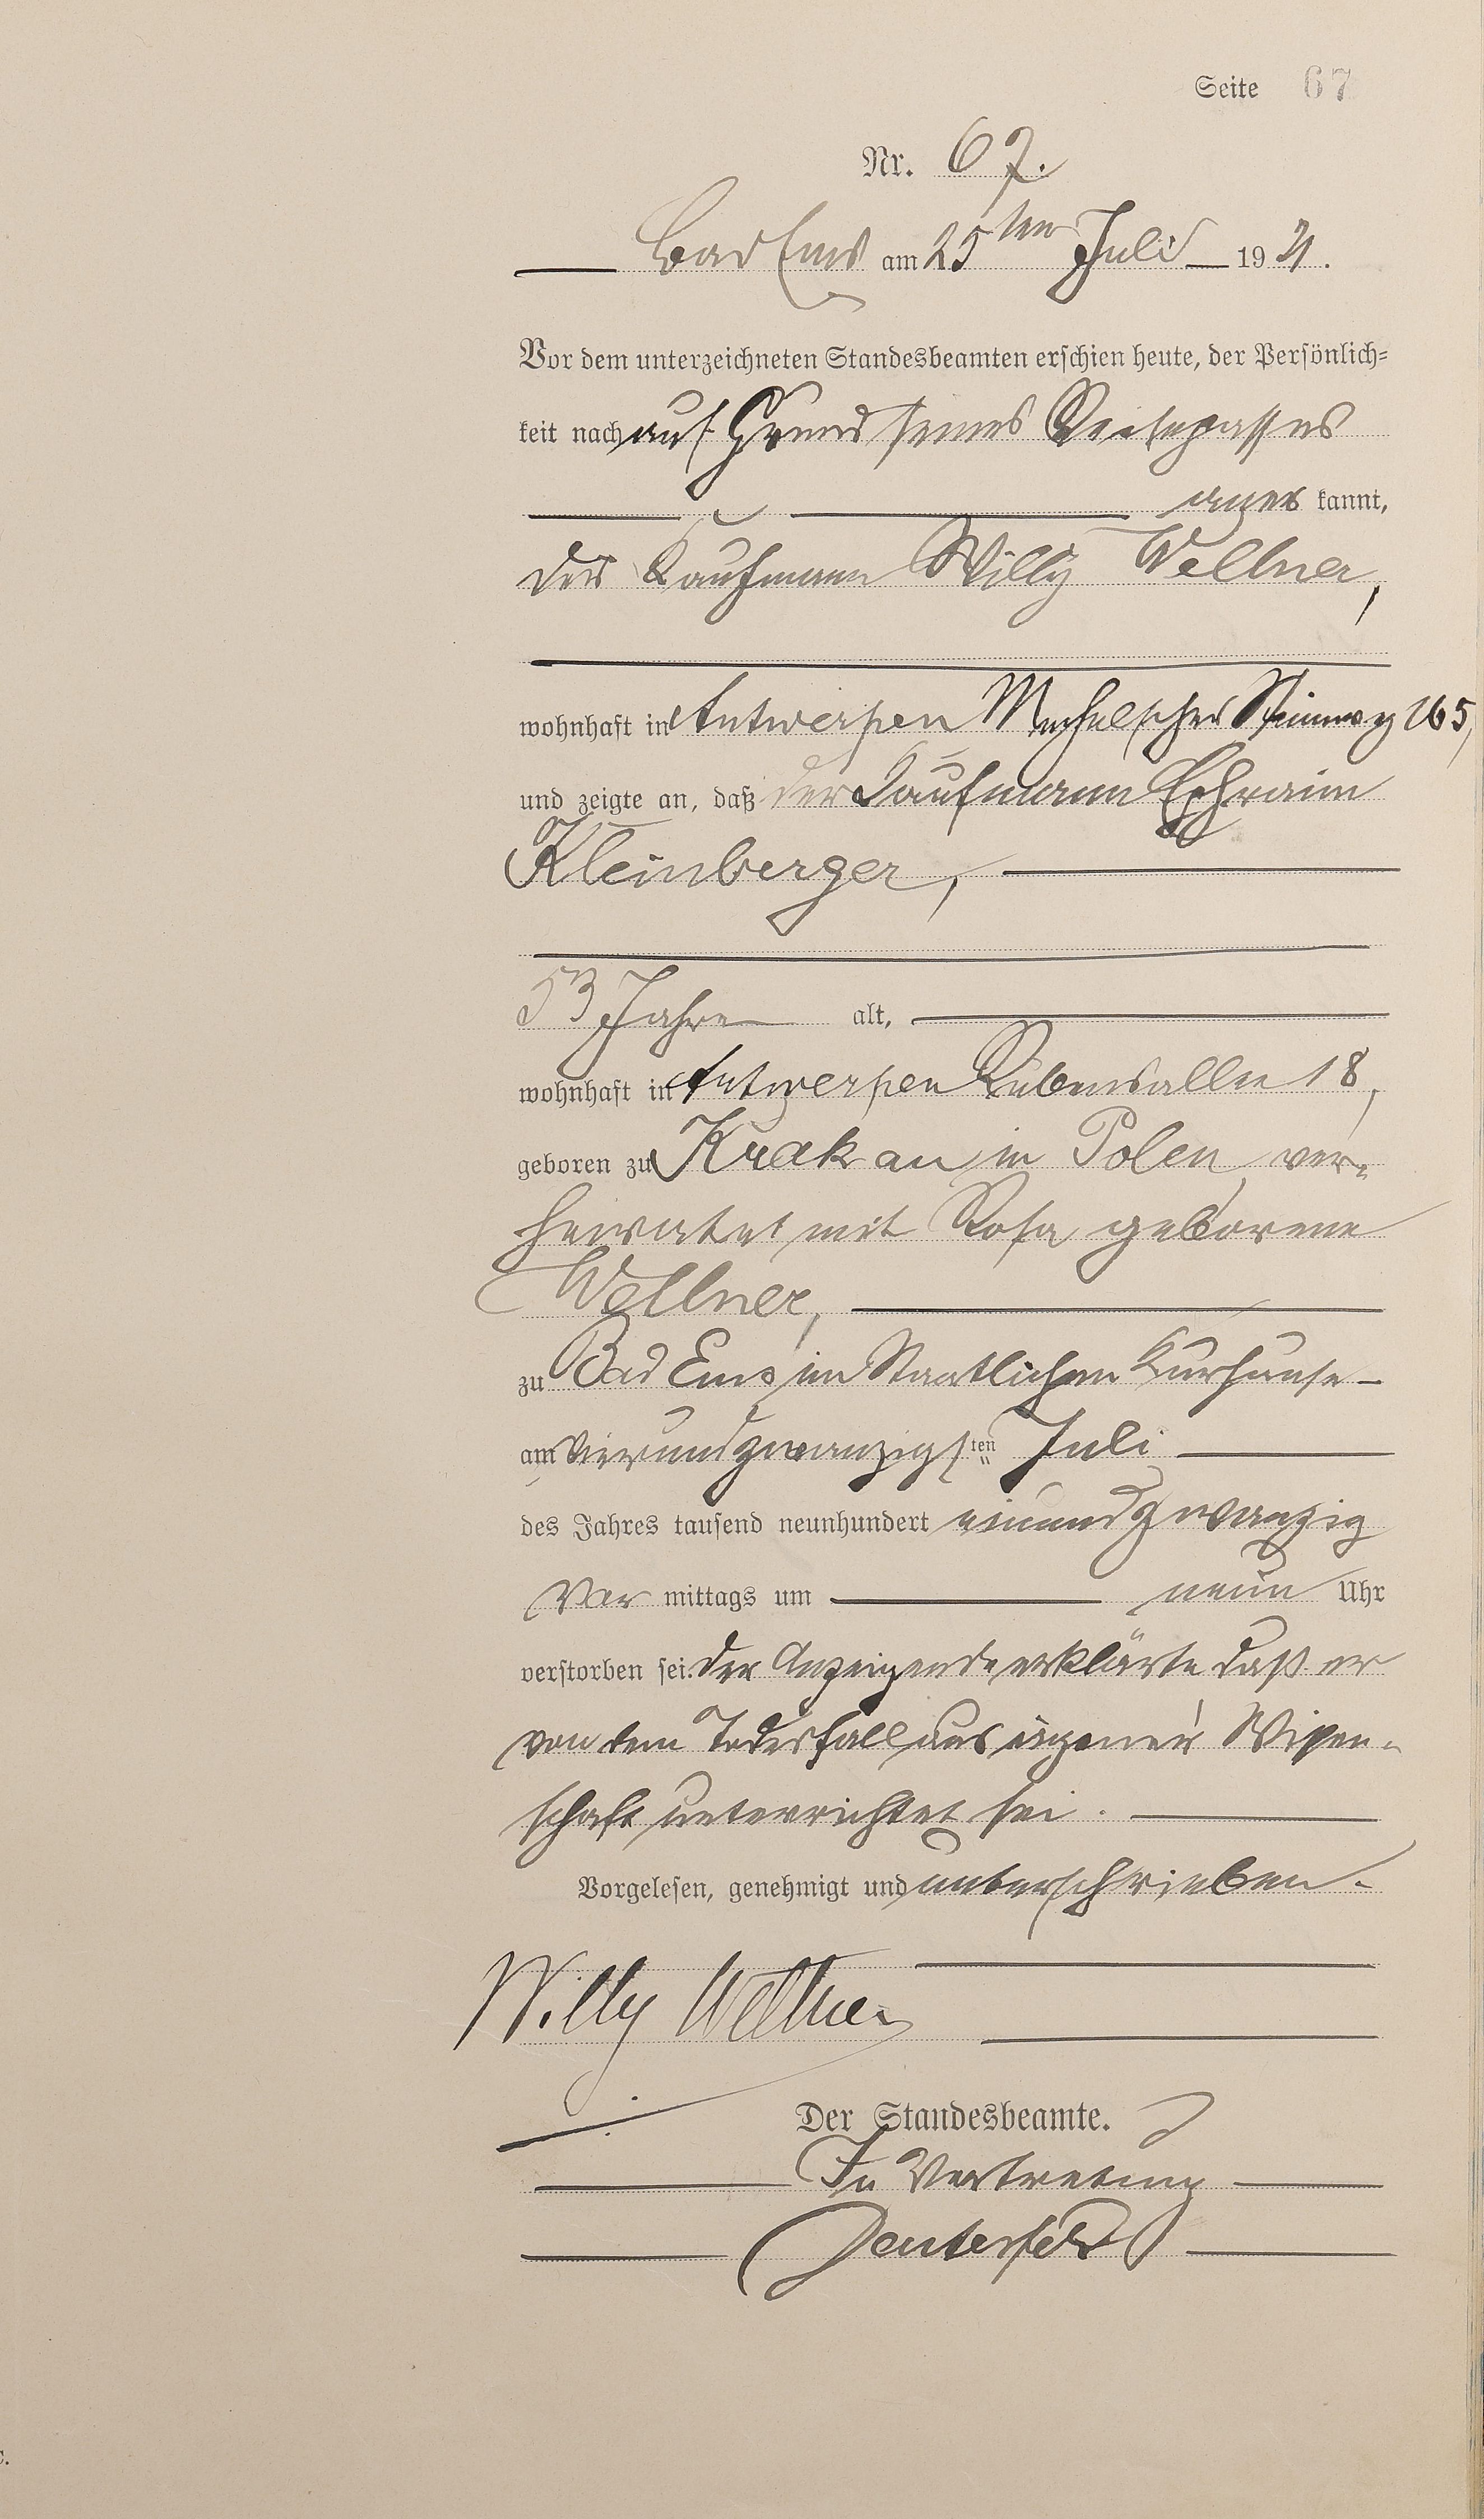 Seite 67
Nr. 67.
Bad Ems am 25ten Juli 1921.
Vor dem unterzeichneten Standesbeamten erschien heute, der Persönlich-
keit nach auf Grund seines Reisepasses
aner kannt,
der Kaufmann Willy Wellner,
wohnhaft in Antwerpen Mechelscher Steinweg 165,
und zeigte an, daß der Kaufmann Ephraim
Kleinberger,
53 Jahre alt,
wohnhaft in Antwerpen Rubensallee 18,
geboren zu Krakau in Polen, ver-
heiratet mit Rosa geborene
Wellner,
zu Bad Ems im Staatlichen Kurhause
am vierundzwanzigsten Juli
des Jahres tausend neunhundert einundzwanzig
Vor mittags um neun Uhr
verstorben sei. Der Anzeigende erklärte daß er
von dem Todesfall aus eigener Wissen-
schaft unterrichtet sei.
Vorgelesen, genehmigt und unterschrieben.
Willy Wellner
Der Standesbeamte.
In Vertretung